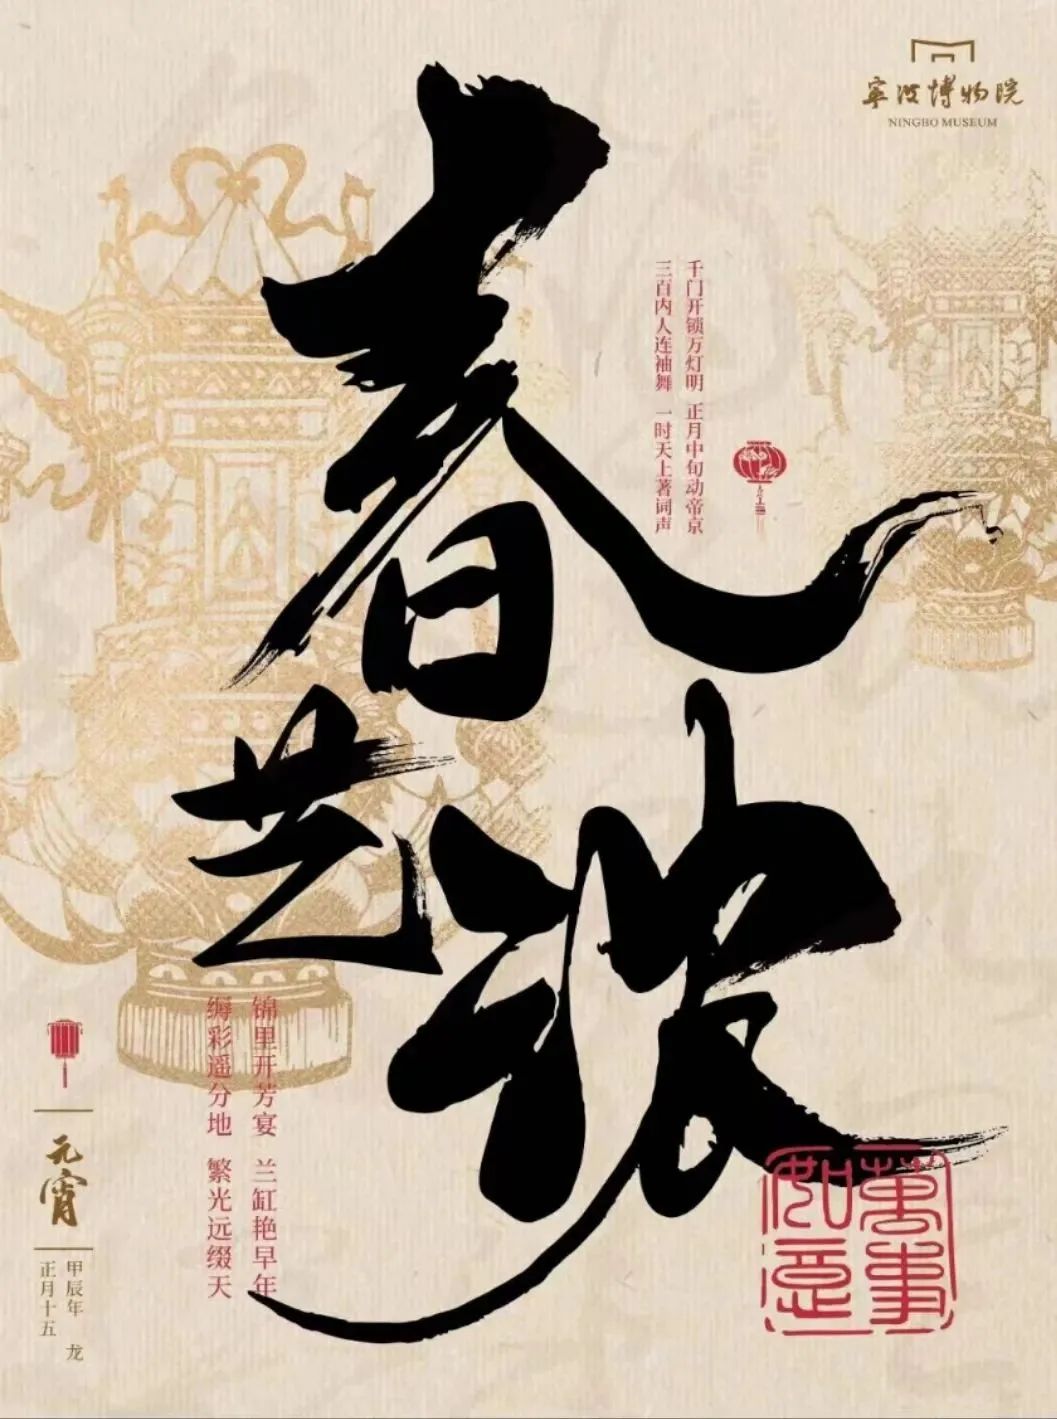 寧波博物院
NINGBO MUSEUM
春
千门开锁万灯明 正月中旬动帝京
三百内人连袖舞 一时天上著词声
锦里开芳宴 兰缸艳早年
缛彩遥分地 繁光远缀天
元宵
甲辰年 龙
正月十五
萬事
如意